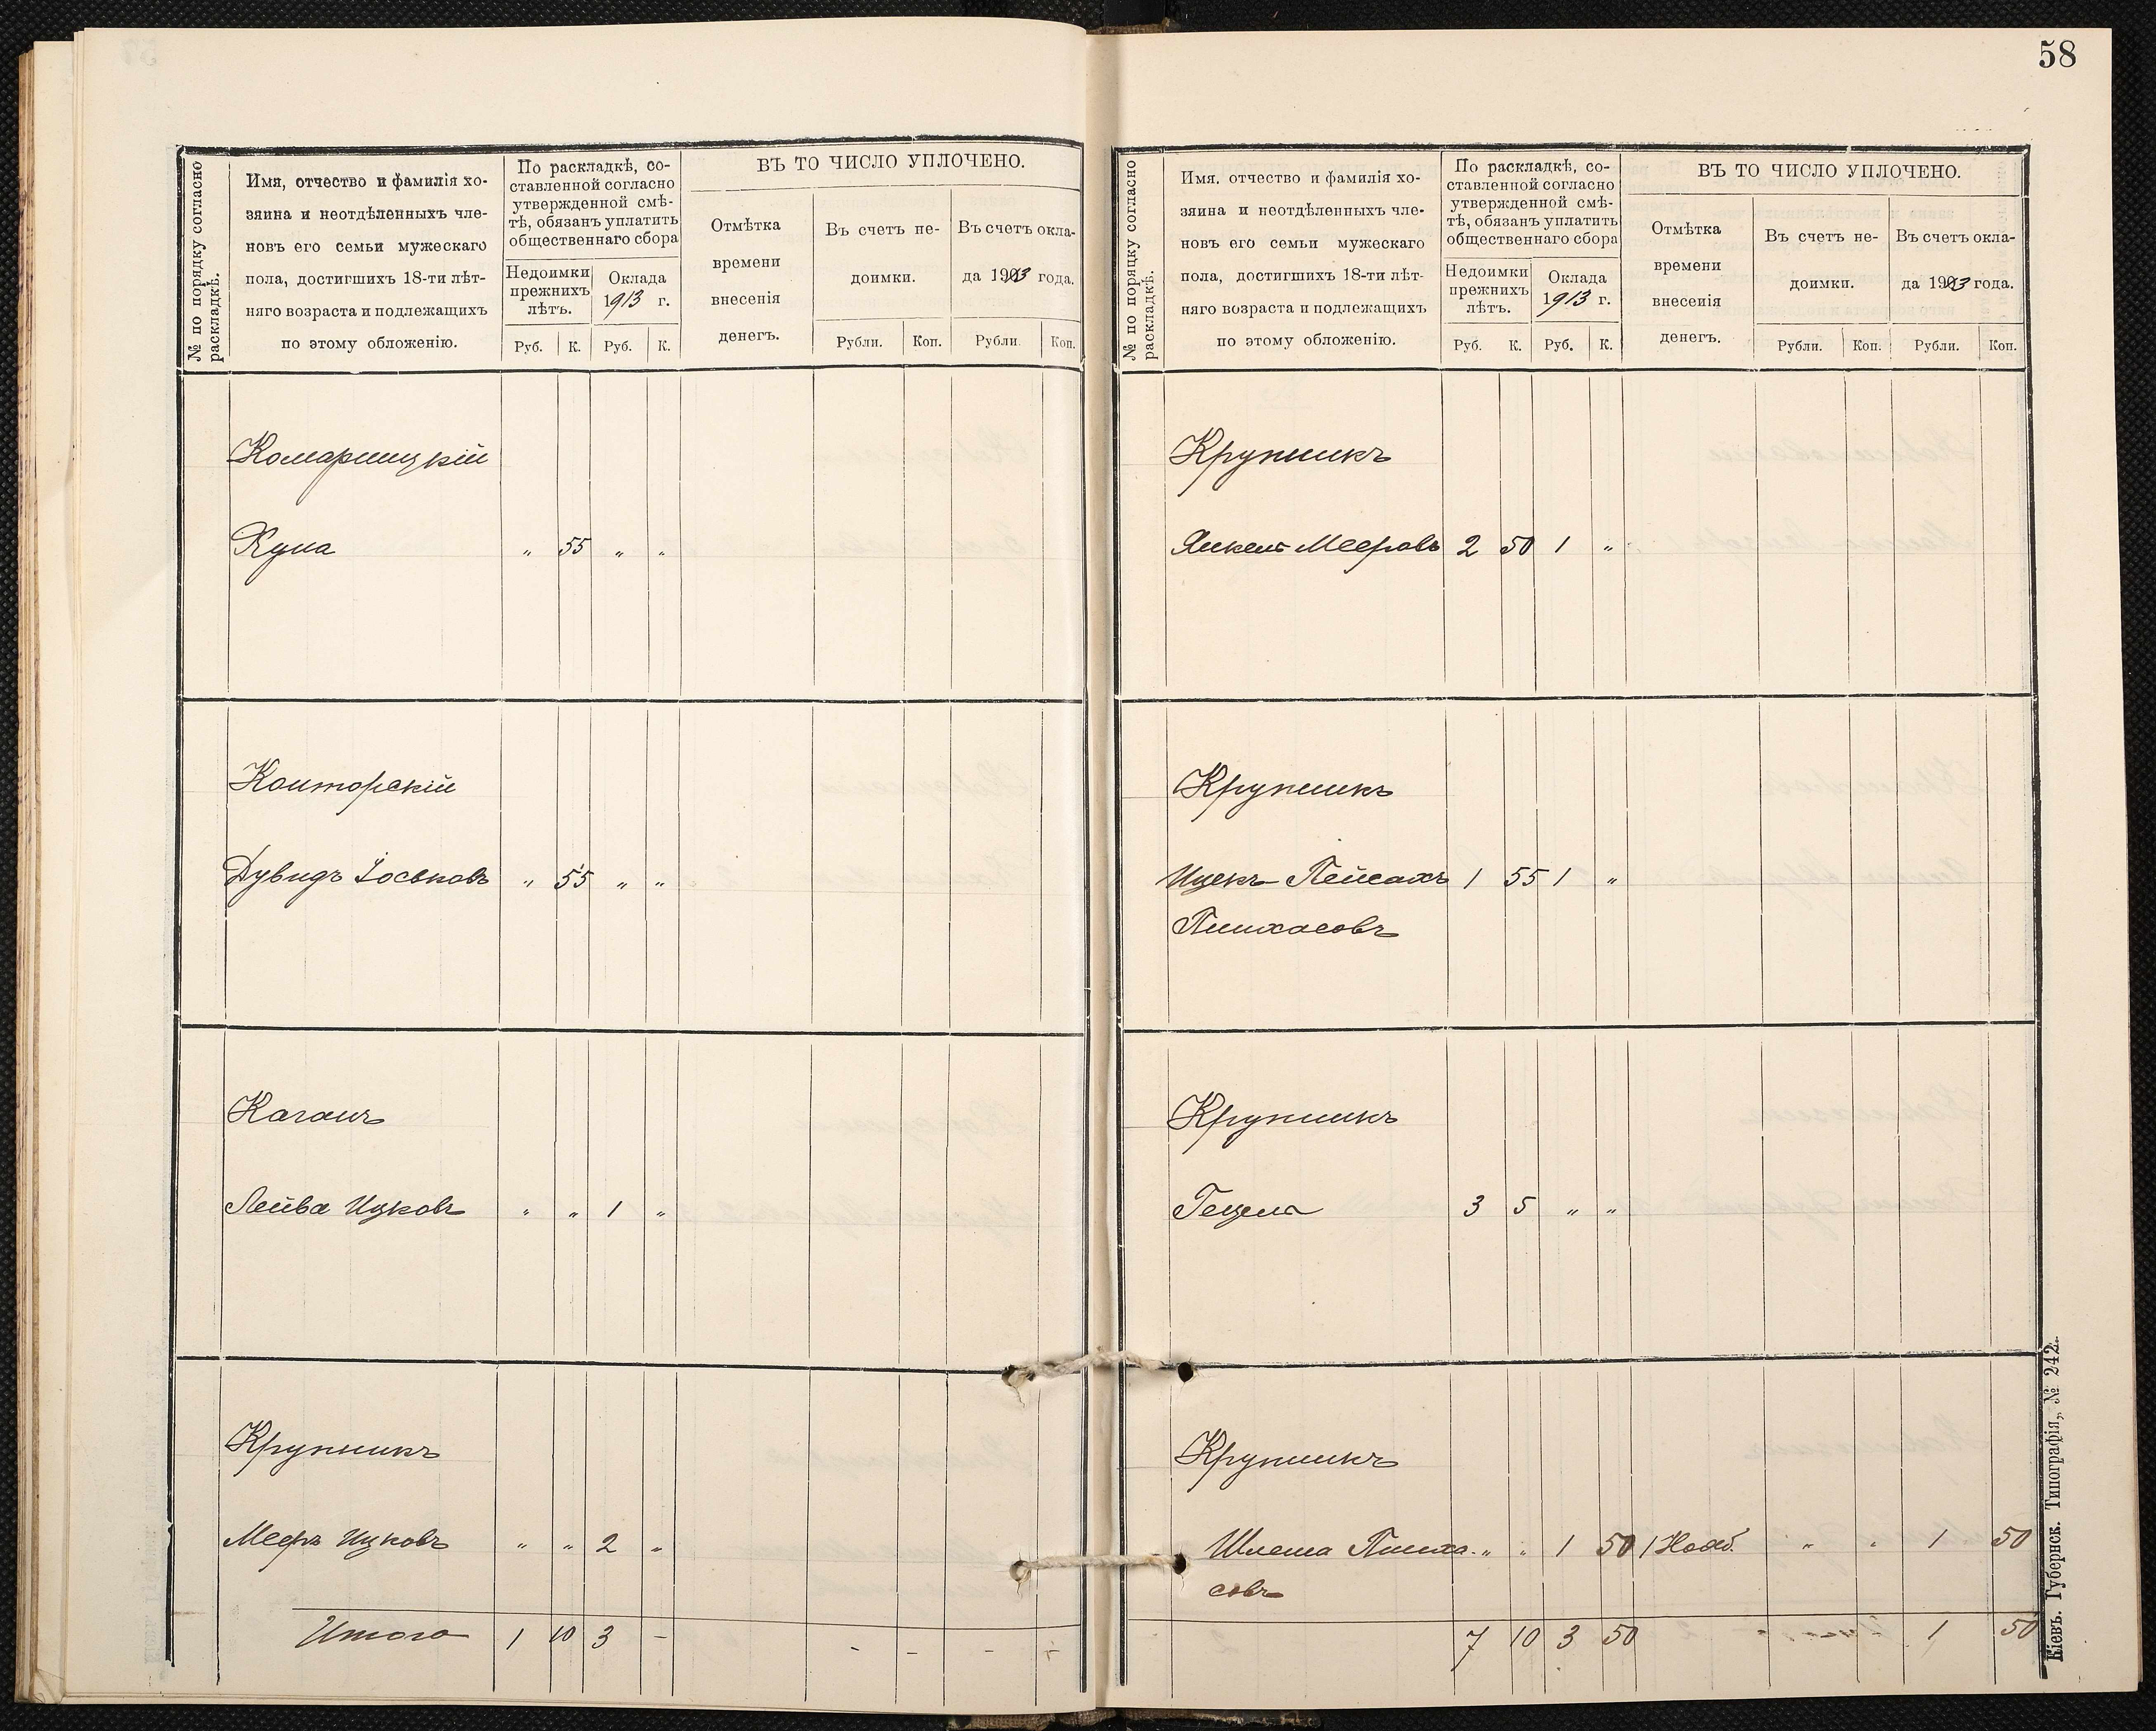 58
№ по порядку согласно раскладкѣ.
Имя, отчество и фамилія хо-
зяина и неотдѣленныхъ чле-
новъ его семьи мужескаго
пола, достигшихъ 18-ти лѣт-
няго возраста и подлежащихъ
по этому обложенію.
По раскладкѣ, со-
ставленной согласно
утвержденной смѣ-
тѣ, обязанъ уплатить
общественнаго сбора
Недоимки
прежнихъ
лѣтъ.
Оклада
1913 г.
Руб. К. Руб. К.
ВЪ ТО ЧИСЛО УПЛОЧЕНО.
Отмѣтка
времени
внесенія
денегъ.
Въ счетъ не-
доимки.
Въ счетъ окла-
да 1913 года.
Рубли. Коп. Рубли. Коп.
Комарницкій
Куна „ 55 „ „
Конторскій
Дувидъ Іоськовъ „ 55 „ „
Каганъ
Лейба Ицковъ „ „ 1 „
Крупникъ
Мееръ Ицковъ „ „ 2 „
Итого 1 10 3 – - - - -
№ по порядку согласно раскладкѣ.
Имя, отчество и фамилія хо-
зяина и неотдѣленныхъ чле-
новъ его семьи мужескаго
пола, достигшихъ 18-ти лѣт-
няго возраста и подлежащихъ
по этому обложенію.
По раскладкѣ, со-
ставленной согласно
утвержденной смѣ-
тѣ, обязанъ уплатить
общественнаго сбора
Недоимки
прежнихъ
лѣтъ.
Оклада
1913 г.
Руб. К. Руб. К.
ВЪ ТО ЧИСЛО УПЛОЧЕНО.
Отмѣтка
времени
внесенія
денегъ.
Въ счетъ не-
доимки.
Въ счетъ окла-
да 1913 года.
Рубли. Коп. Рубли. Коп.
Крупникъ
Янкель Мееровъ 2 50 1 „
Крупникъ
Ицекъ Пейсахъ 1 55 1 „
Пинхасовъ
Крупникъ
Гецель 3 5 „ „
Крупникъ
Шлема Пинха- „ „ 1 50 1 Нояб. „ „ 1 50
совъ
7 10 3 50 1 50
Кіевъ. Губернск. Типографія, № 242.